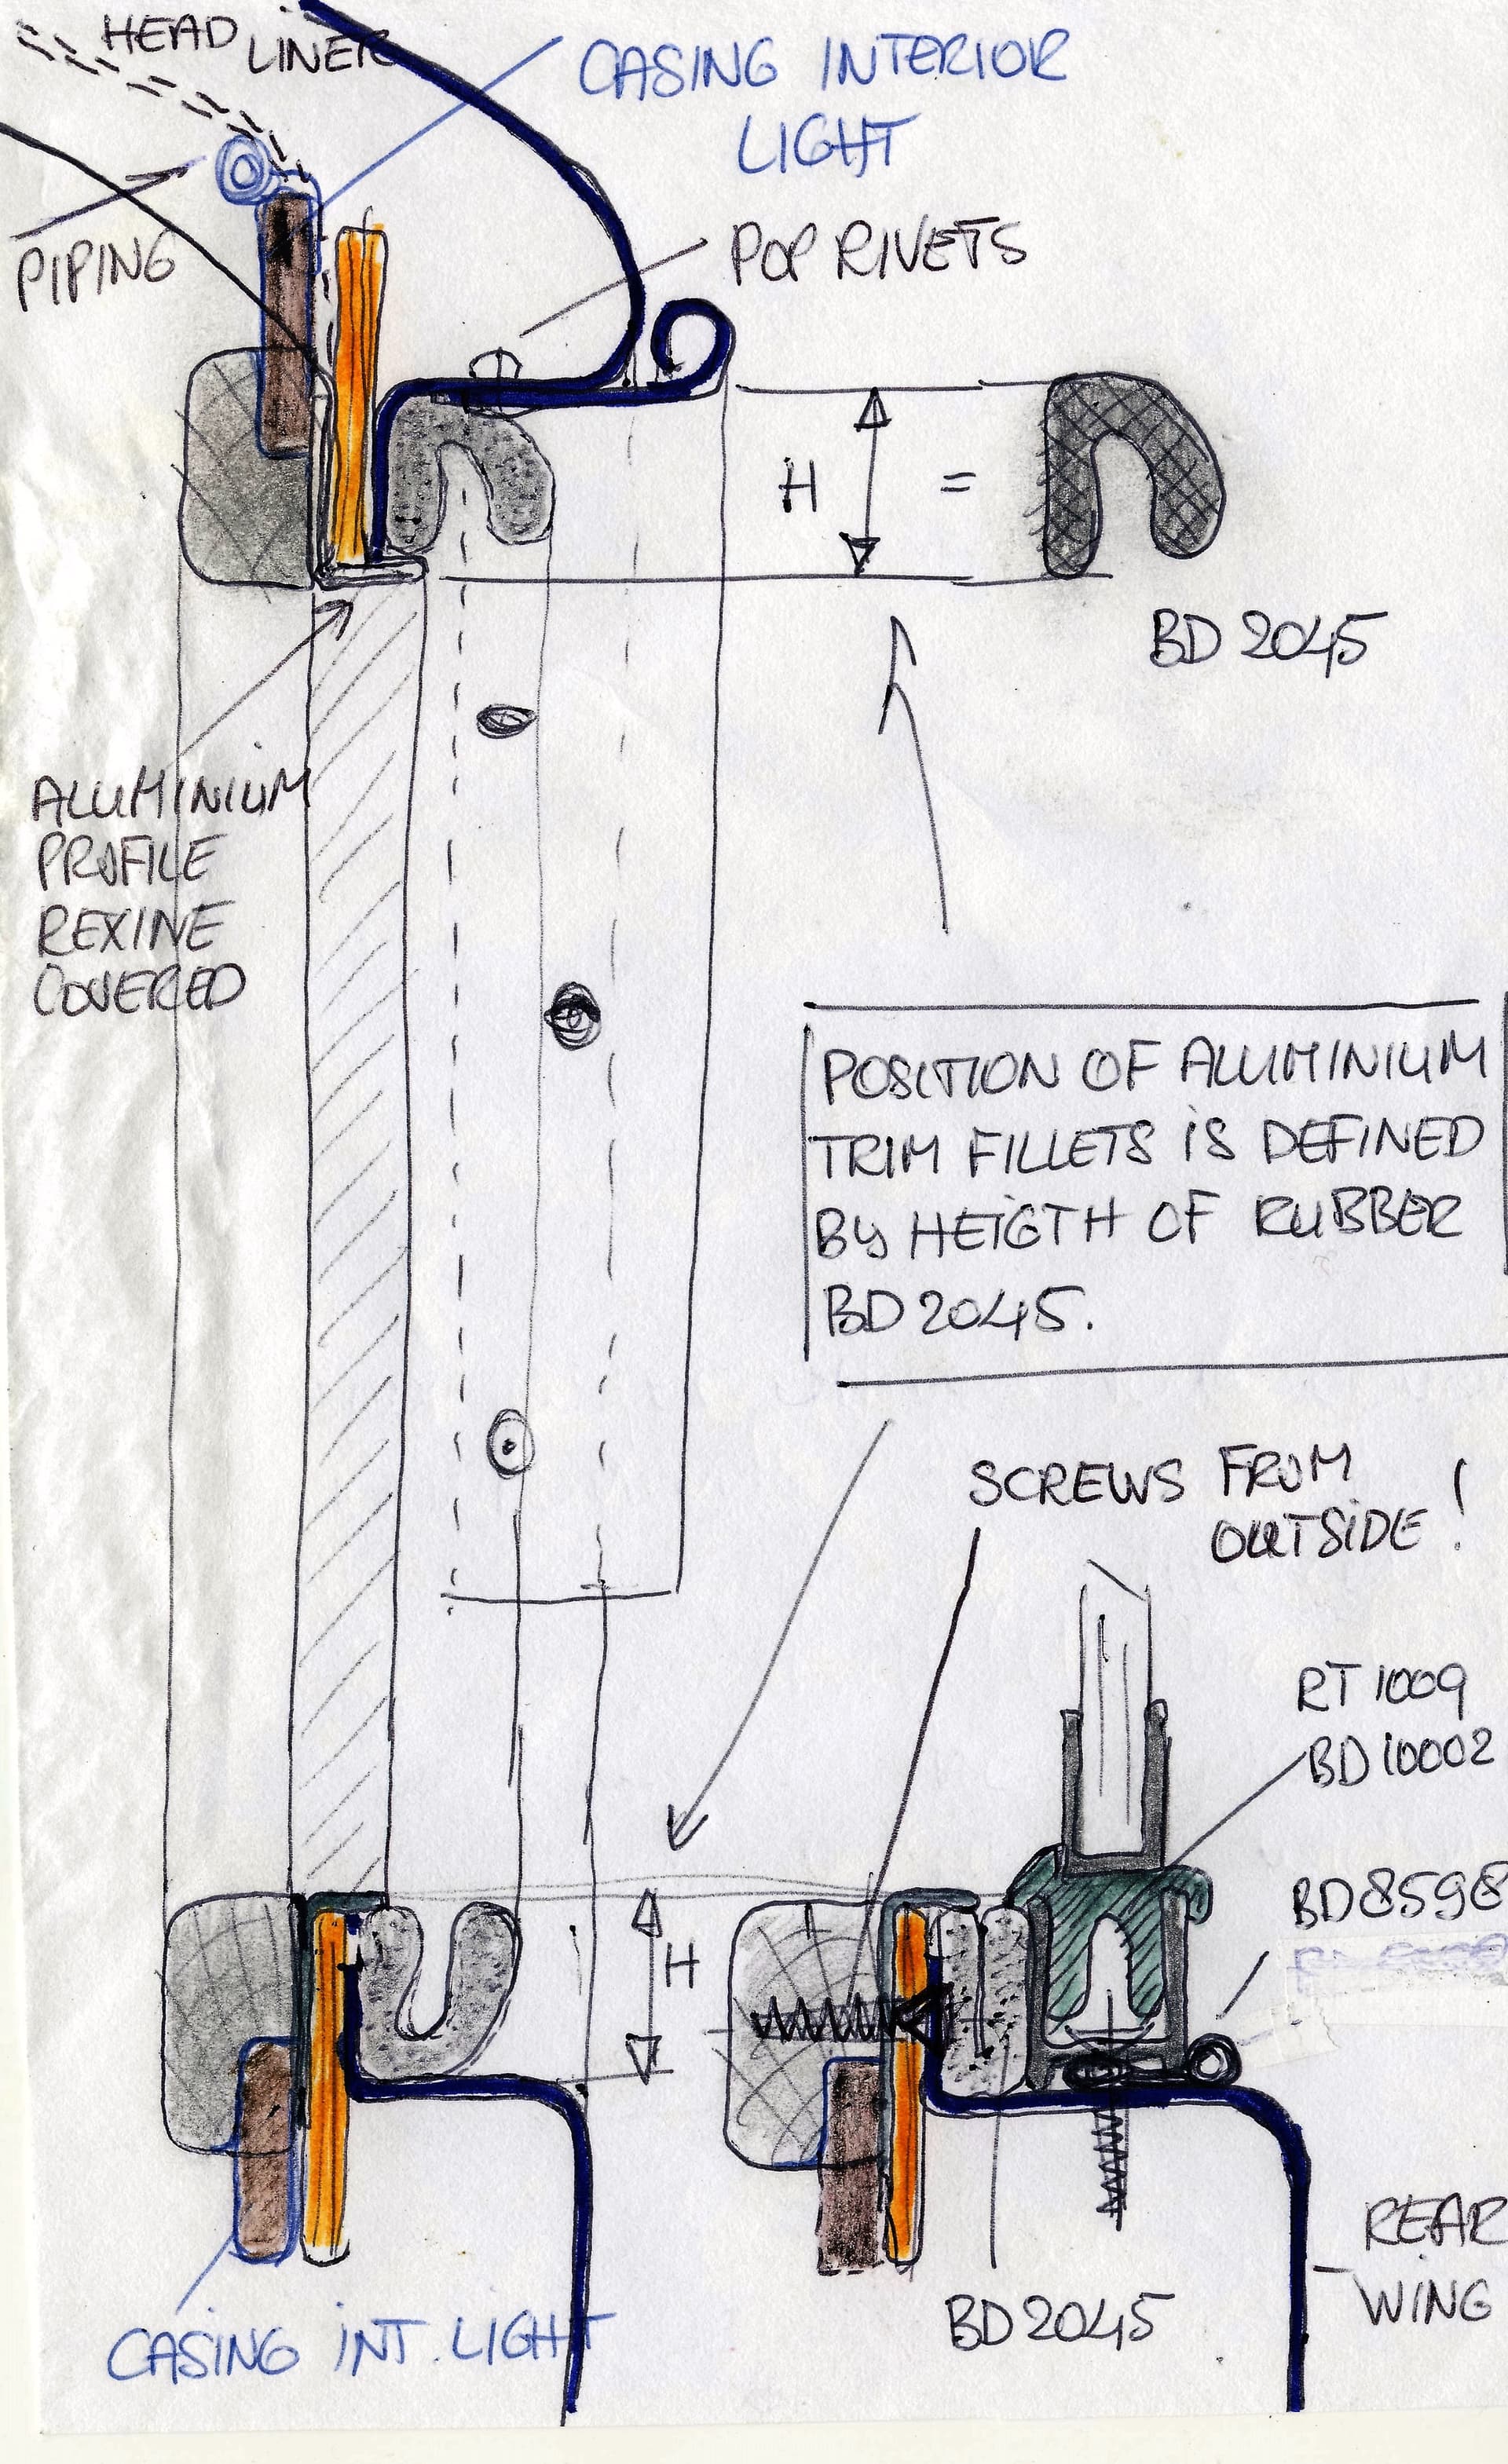 HEAD LINER
CASING INTERIOR
LIGHT
PIPING
POP RIVETS
H =
BD 2045
ALUMINIUM
PROFILE
REXINE
COVERED
POSITION OF ALUMINIUM
TRIM FILLETS IS DEFINED
BY HEIGTH OF RUBBER
BD 2045.
SCREWS FROM
OUTSIDE!
RT 1009
BD 10002
BD 8598
H
REAR
WING
BD 2045
CASING INT. LIGHT